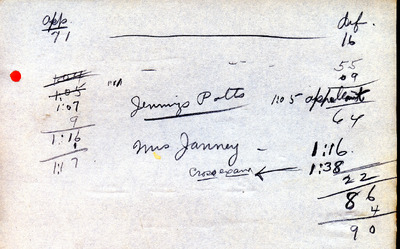 opp. def.
71 16
55
1:04 09
1:05
1:07 Jennings Potts 1:05 appellant
9 64
1:16 Mrs Janney - 1:16
1 Cross exam 1:38
1:17 22
86
4
90